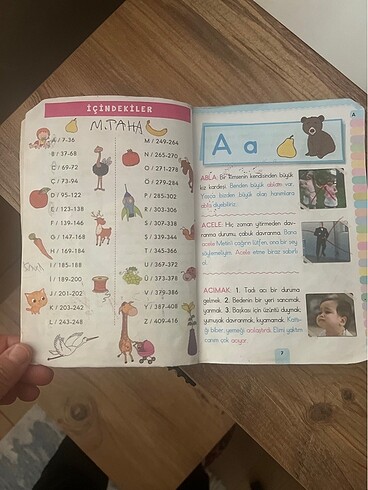 İÇİNDEKİLER
M.TAHA
A / 7-36
B / 37-68
C / 69-72
Ç / 73-94
D / 95-122
E / 123-138
F / 139-146
G / 147-168
H / 169-184
I / 185-188
İ / 189-200
J / 201-202
K / 203-242
L / 243-248
M / 249-264
N / 265-270
O / 271-278
Ö / 279-284
P / 285-302
R / 303-306
S / 307-338
Ş / 339-344
T / 345-366
U / 367-372
Ü / 373-378
V / 379-386
Y / 387-408
Z / 409-416
A
A a
ABLA: Bir kimsenin kendisinden büyük
kız kardeşi. Benden büyük ablam var.
Yaşça bizden büyük olan hanımlara
abla diyebiliriz.
ACELE: Hiç zaman yitirmeden dav-
ranma durumu, çabuk davranma. Bana
acele Metin'i çağırın lütfen, ona bir şey
söylemeliyim. Acele etme biraz sabırlı
ol.
ACIMAK: 1. Tadı acı bir duruma
gelmek. 2. Bedenin bir yeri sancımak,
yanmak. 3. Başkası için üzüntü duymak;
yumuşak davranmak, kıyamamak. Kattı-
ğı biber, yemeği acılaştırdı. Elimi yaktım
canım çok acıyor.
7